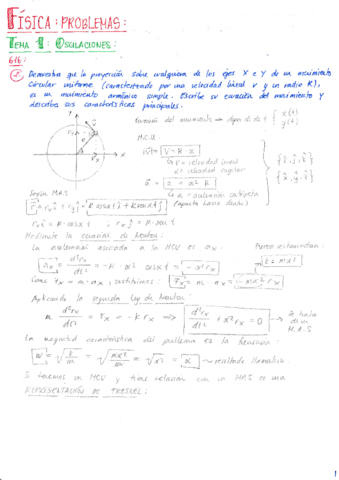 FÍSICA: PROBLEMAS:
TEMA 1: OSCILACIONES:
616:
Demuestra que la proyección sobre cualquiera de los ejes X e Y de un movimiento
circular uniforme (caracterizado por una velocidad lineal v y un radio R),
es un movimiento armónico simple. Escribe su ecuación del movimiento y
describa sus características principales.
Ecuación del movimiento → dependen de t { x(t)
y(t)
M.C.U.
V = R · α
v = velocidad lineal
α = velocidad angular
a = α² R
(apunta hacia dentro)
Según M.A.S.
r = r_x i + r_y j = R cos αt i + R sen αt j
r_x i = R · cos αt ; r_y j = R · sen αt
Mediante la ecuación de Newton:
La aceleración asociada a la MCU es a_x:
a_x = d²r_x/dt² = -R · α² cos αt = -α² r_x
k = mα²
Como F_x = m · a_x, sustituimos: F_x = m · a_x = -mα² r_x
Aplicando la segunda ley de Newton:
m d²r_x/dt² = F_x = -k r_x ⟹ d²r_x/dt² + α² r_x = 0
Se trata
de un
M.A.S
La magnitud característica del problema es la frecuencia:
ω = √k/m = √mα²/m = √α² = α → resultado llamativo
Si tenemos un MCU y tiene relación con un MAS es una
REPRESENTACIÓN DE FRESNEL:
1